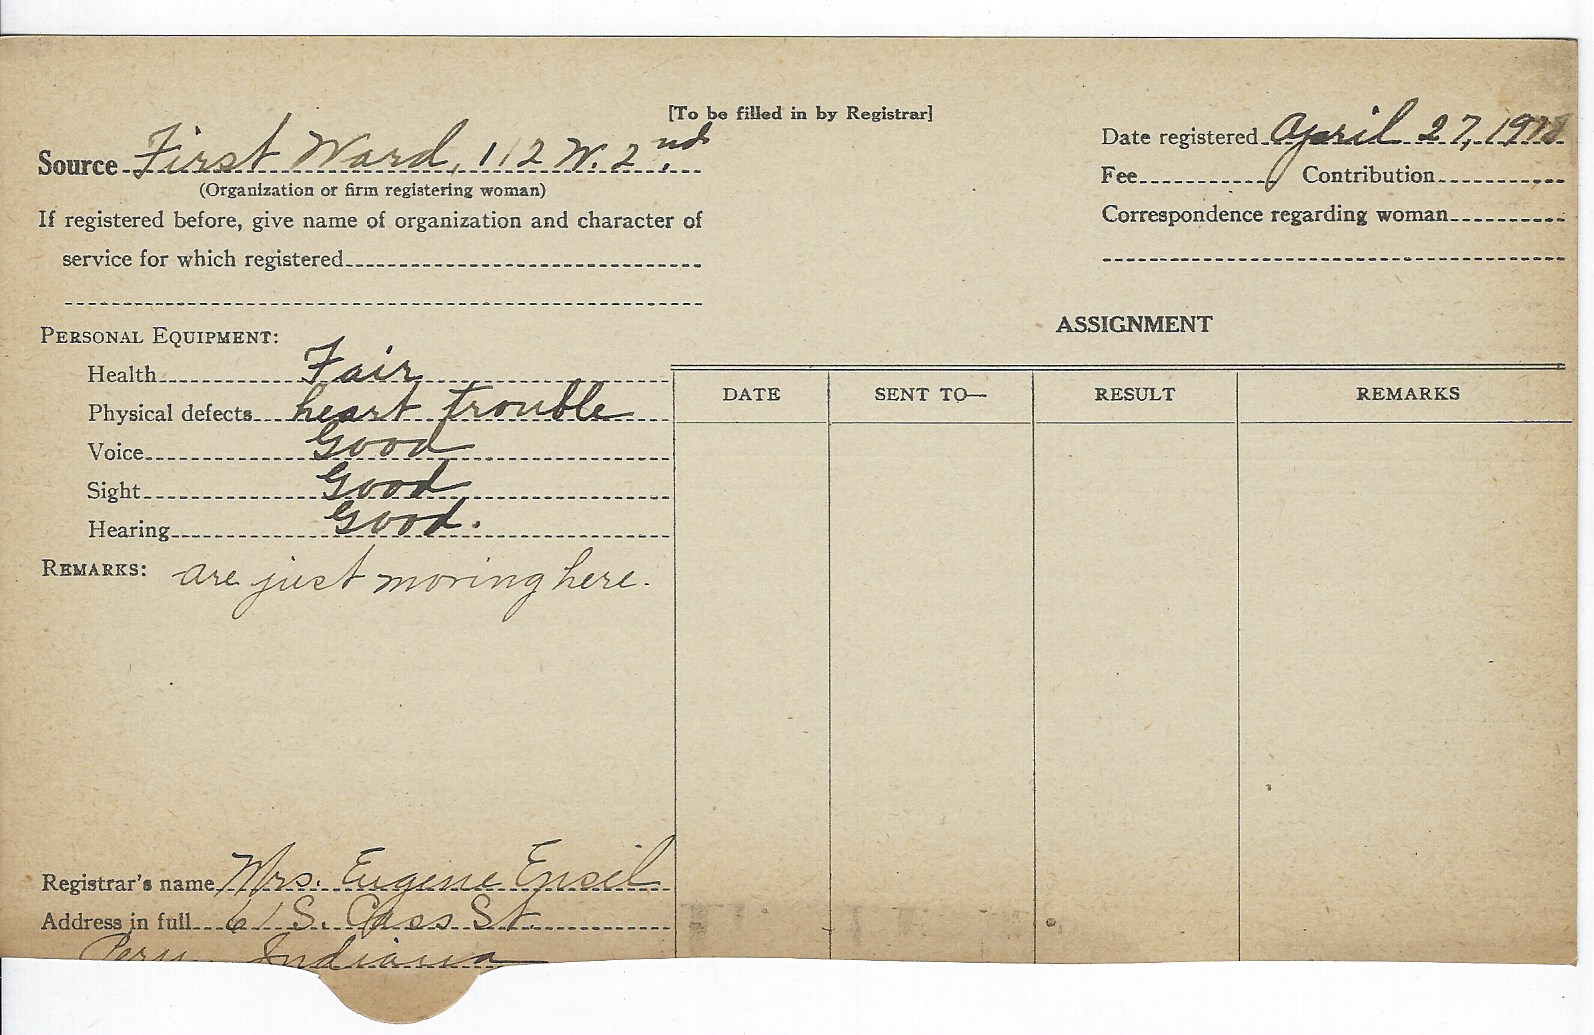 [To be filled in by Registrar]
Source First Ward, 112 W. 2nd.
(Organization or firm registering woman)
If registered before, give name of organization and character of
service for which registered
Date registered April 27, 1918
Fee Contribution
Correspondence regarding woman
PERSONAL EQUIPMENT:
Health Fair
Physical defects heart trouble
Voice Good
Sight Good
Hearing Good.
REMARKS: are just moving here.
Registrar's name Mrs. Eugene Ensil
Address in full 61 S. Cass St.
Peru, Indiana
ASSIGNMENT
DATE SENT TO— RESULT REMARKS